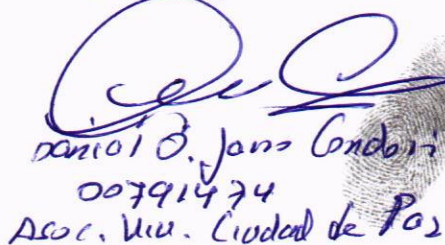 Daniel O. Jano Condori
00791474
Asoc. Viv. Ciudad de Paz